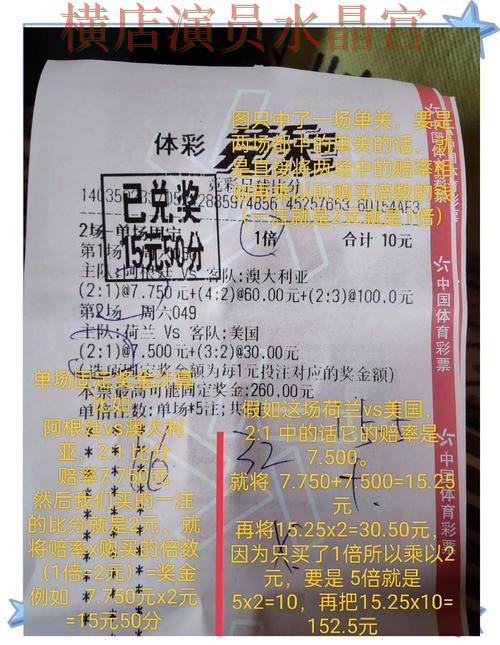 横店演员水晶宫
图只中了一场单关，要是
两场都中的单关的话，就
体彩
竞彩足球比分
已兑奖
15元50分
（一注就是2元就是1倍）
2场-单场固定
1倍
合计 10元
第1场
主队:阿根廷 VS 客队:澳大利亚
(2:1)@7.750元+(4:2)@60.00元+(2:3)@100.0元
第2场 周六049
主队:荷兰 Vs 客队:美国
(2:1)@7.500元+(3:2)@30.00元
(选项固定奖金额为每1元投注对应的奖金额)
本票最高可能固定奖金:260.00元
单倍注数:单场*5注;共
单场固定奖金计算
比如
阿根廷vs澳大利
亚，2:1 比分
赔率7.750元
然后我们买的一注
的比分就是2元，就
将赔率x购买的倍数
（1倍=2元）=奖金
例如 7.750元x2元
=15元50分
假如这场荷兰vs美国，
2:1 中的话它的赔率是
7.500。
就将 7.750+7.500=15.25
元
再将15.25x2=30.50元，
因为只买了1倍所以乘以2
元，要是 5倍就是
5x2=10，再把15.25x10=
152.5元
32
中国体育彩票
中国体育彩票
中国体育彩票